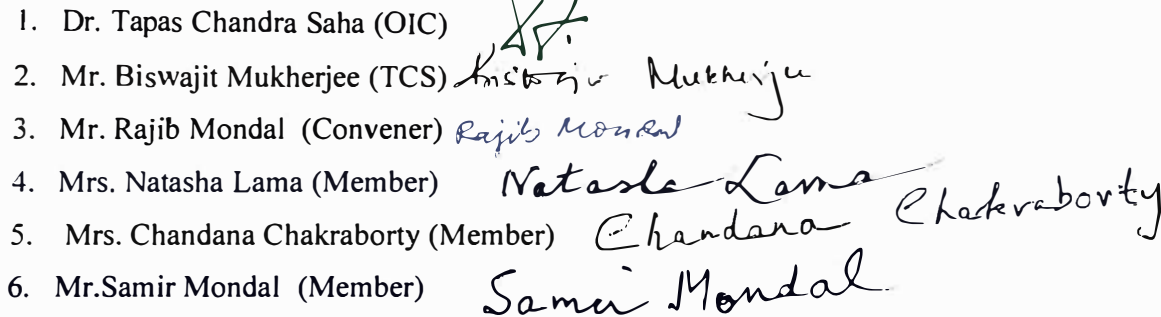 1. Dr. Tapas Chandra Saha (OIC)
2. Mr. Biswajit Mukherjee (TCS) Mukherjee
3. Mr. Rajib Mondal (Convener) Rajib Mondal
4. Mrs. Natasha Lama (Member) Natasha Lama
5. Mrs. Chandana Chakraborty (Member) Chandana Chakraborty
6. Mr.Samir Mondal (Member) Samir Mondal